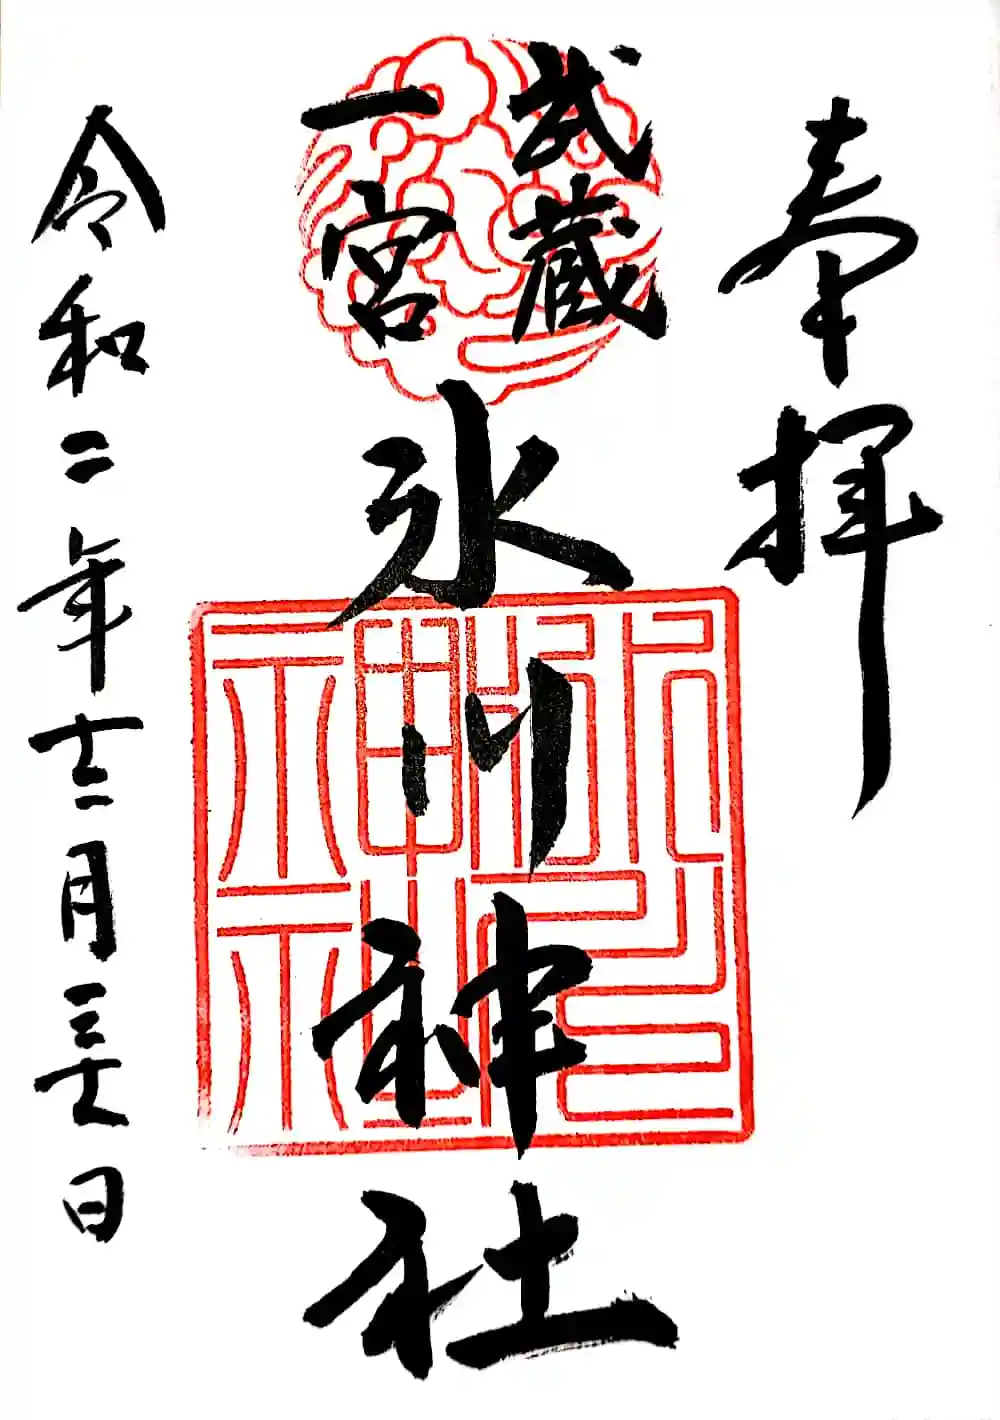 奉拝
武蔵
一宮
氷川神社
令和二年十二月 日
氷川
神社